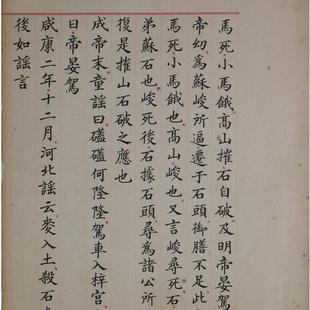 馬死小馬餓高山摧石自破及明帝晏駕
帝幼為蘇峻所逼遷于石頭御膳不足此
馬死小馬餓也高山峻也又言峻尋死石
弟蘇石也峻死後石據石頭尋為諸公所
復是摧山石破之應也
成帝末童謠曰磕磕何隆隆駕車入梓宫
日帝晏駕
咸康二年十二月河北謠云麥入土殺石
後如謠言